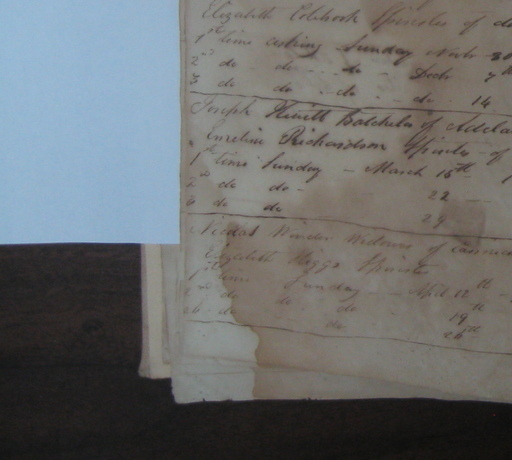 Elizabeth Spinster of
1st time asking Sunday Novbr 30
2nd do do do Decbr 7th
3 do do do do 14
Joseph Hewitt Batchelor of Adela
Emeline Richardson Spinster of
1st time Sunday March 15th
2nd do do 22
3 do do 29
Winder Widower of
Elizabeth Heggs Spinster
1st time Sunday April 12th
2nd do do do 19th
do do 26th